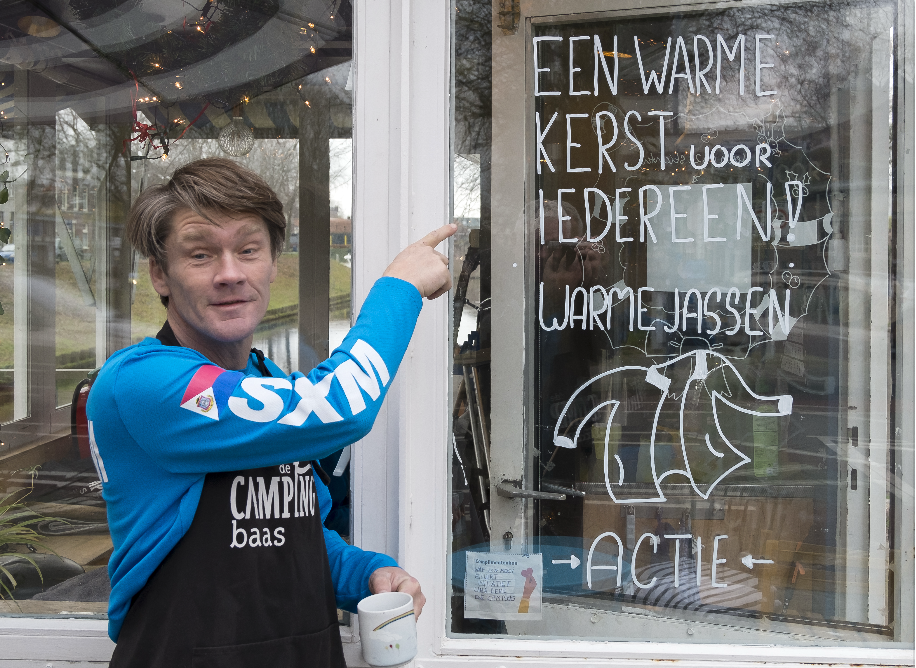 EEN WARME
KERST VOOR
IEDEREEN!
WARME JASSEN
→ACTIE←
SXM
de
CAMPING
baas